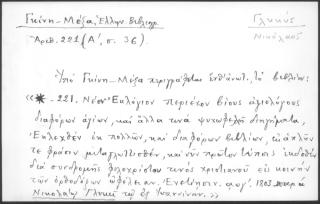 Γκίνη - Μέξα, Ἑλλην. Βιβλιογρ.
Γλυκύς
Νικόλαος
Ἀριθ. 221 (Α΄, σ. 36).
Ὑπὸ Γκίνη - Μέξα περιγράφεται τὸ βιβλίον:
«✱ - 221. Νέον Ἐκλόγιον περιέχον βίους ἀξιολόγους
διαφόρων ἁγίων, καὶ ἄλλα τινὰ ψυχωφελῆ διηγήματα,
Ἐκλεχθὲν ἐκ πολλῶν, καὶ διαφόρων βιβλίων, εἰς ἁπλῆν
τε φράσιν μεταγλωττισθέν, καὶ νῦν πρῶτον τύποις ἐκδοθὲν
διὰ συνδρομῆς φιλοχρίστου τινὸς χριστιανοῦ εἰς κοινὴν
τῶν ὀρθοδόξων ὠφέλειαν. Ἐνετίησιν. αωγ΄. 1803 παρὰ
Νικολάῳ Γλυκεῖ τῷ ἐξ Ἰωαννίνων.»